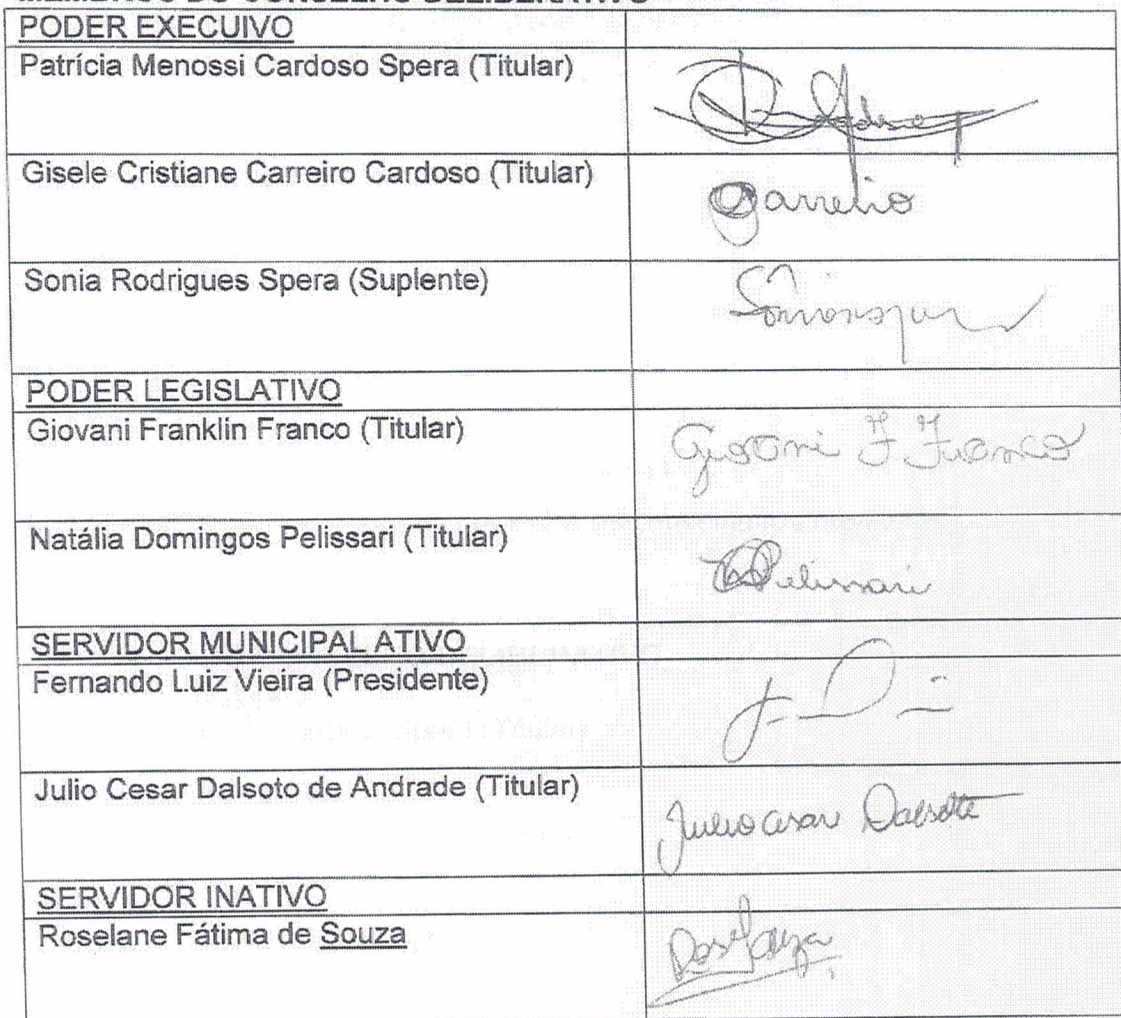 MEMBROS DO CONSELHO DELIBERATIVO
PODER EXECUIVO
Patrícia Menossi Cardoso Spera (Titular)
Gisele Cristiane Carreiro Cardoso (Titular)
Sonia Rodrigues Spera (Suplente)
PODER LEGISLATIVO
Giovani Franklin Franco (Titular)
Giovani F. Franco
Natália Domingos Pelissari (Titular)
Pelissari
SERVIDOR MUNICIPAL ATIVO
Fernando Luiz Vieira (Presidente)
Julio Cesar Dalsoto de Andrade (Titular)
Julio Cesar Dalsoto
SERVIDOR INATIVO
Roselane Fátima de Souza